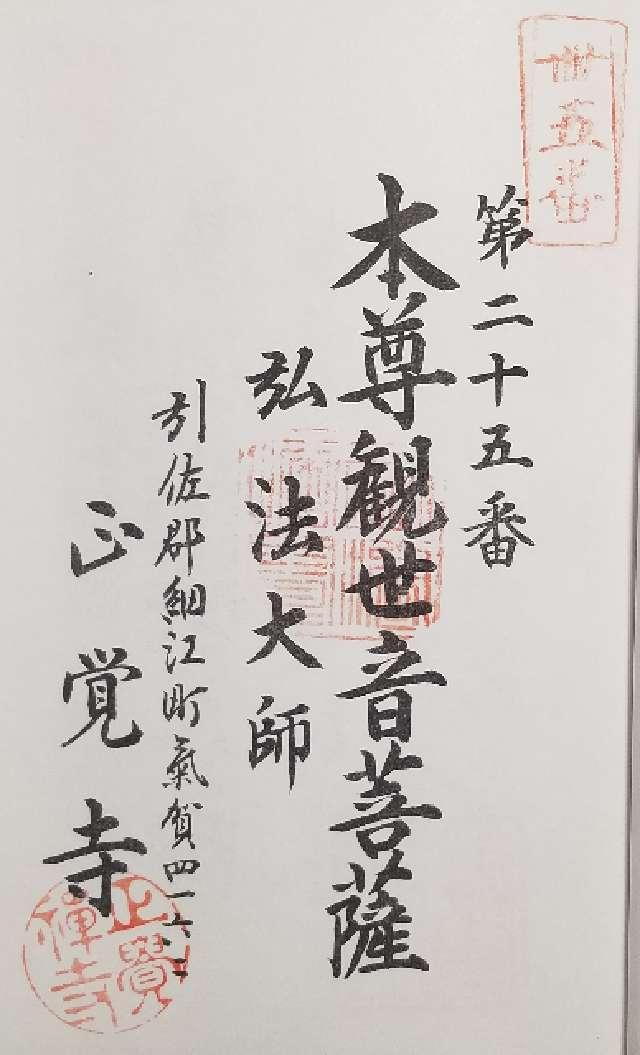 第二十五番
本尊観世音菩薩
弘法大師
引佐郡細江町氣賀四一六一二
正覚寺
正覺禪寺